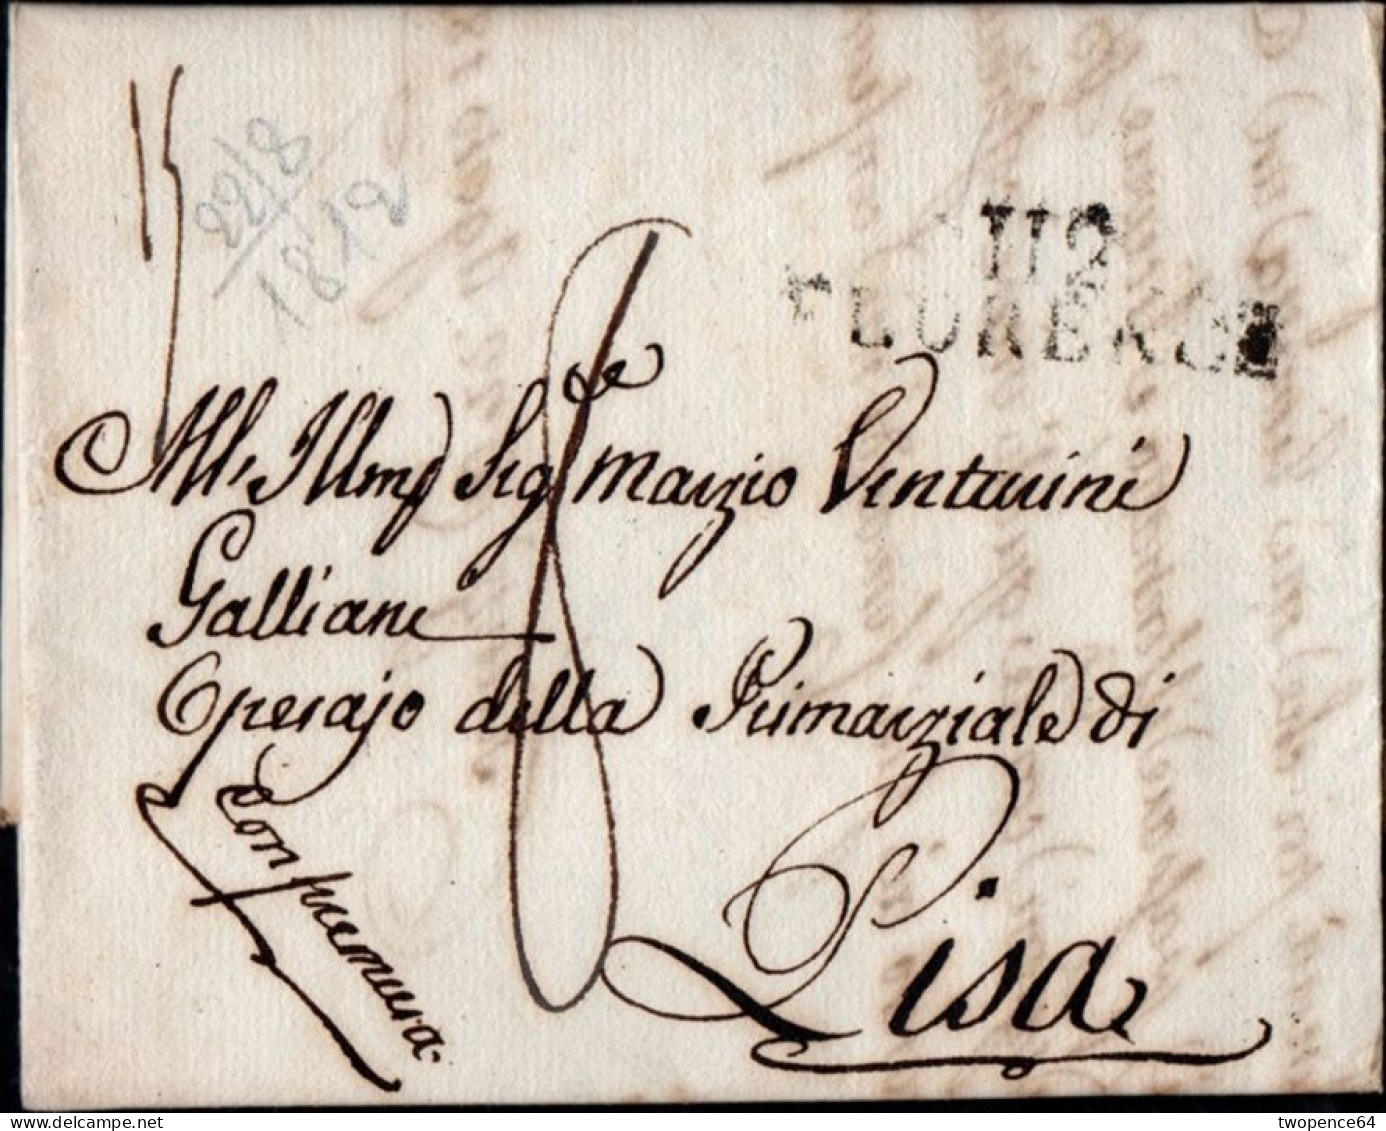 22/8
1812
112
FLORENCE
All' Illmo Sigre Marzio Venturini
Galliani
Operajo della Primarziale di
Pisa
Con premura.
twopence64